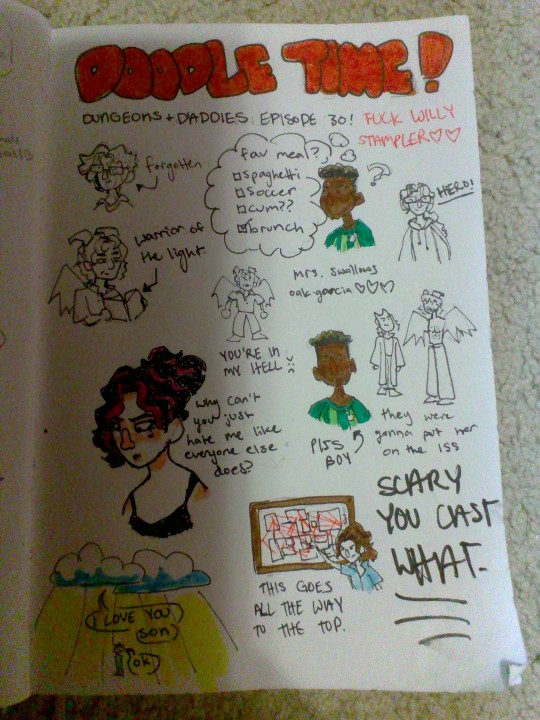 DOODLE TIME!
DUNGEONS + DADDIES EPISODE 30! FUCK WILLY
STAMPLER ♡♡
forgotten
fav meal?
spaghetti
soccer
cum??
brunch
?
HERO!
warrior of
the light
mrs. swallows
oak-garcia ♡♡♡
YOU'RE IN
MY HELL
why can't
you just
hate me like
everyone else
does?
PISS
BOY
they were
gonna put her
on the ISS
SCARY
YOU CAST
WHAT.
THIS GOES
ALL THE WAY
TO THE TOP.
I LOVE YOU
SON
OK